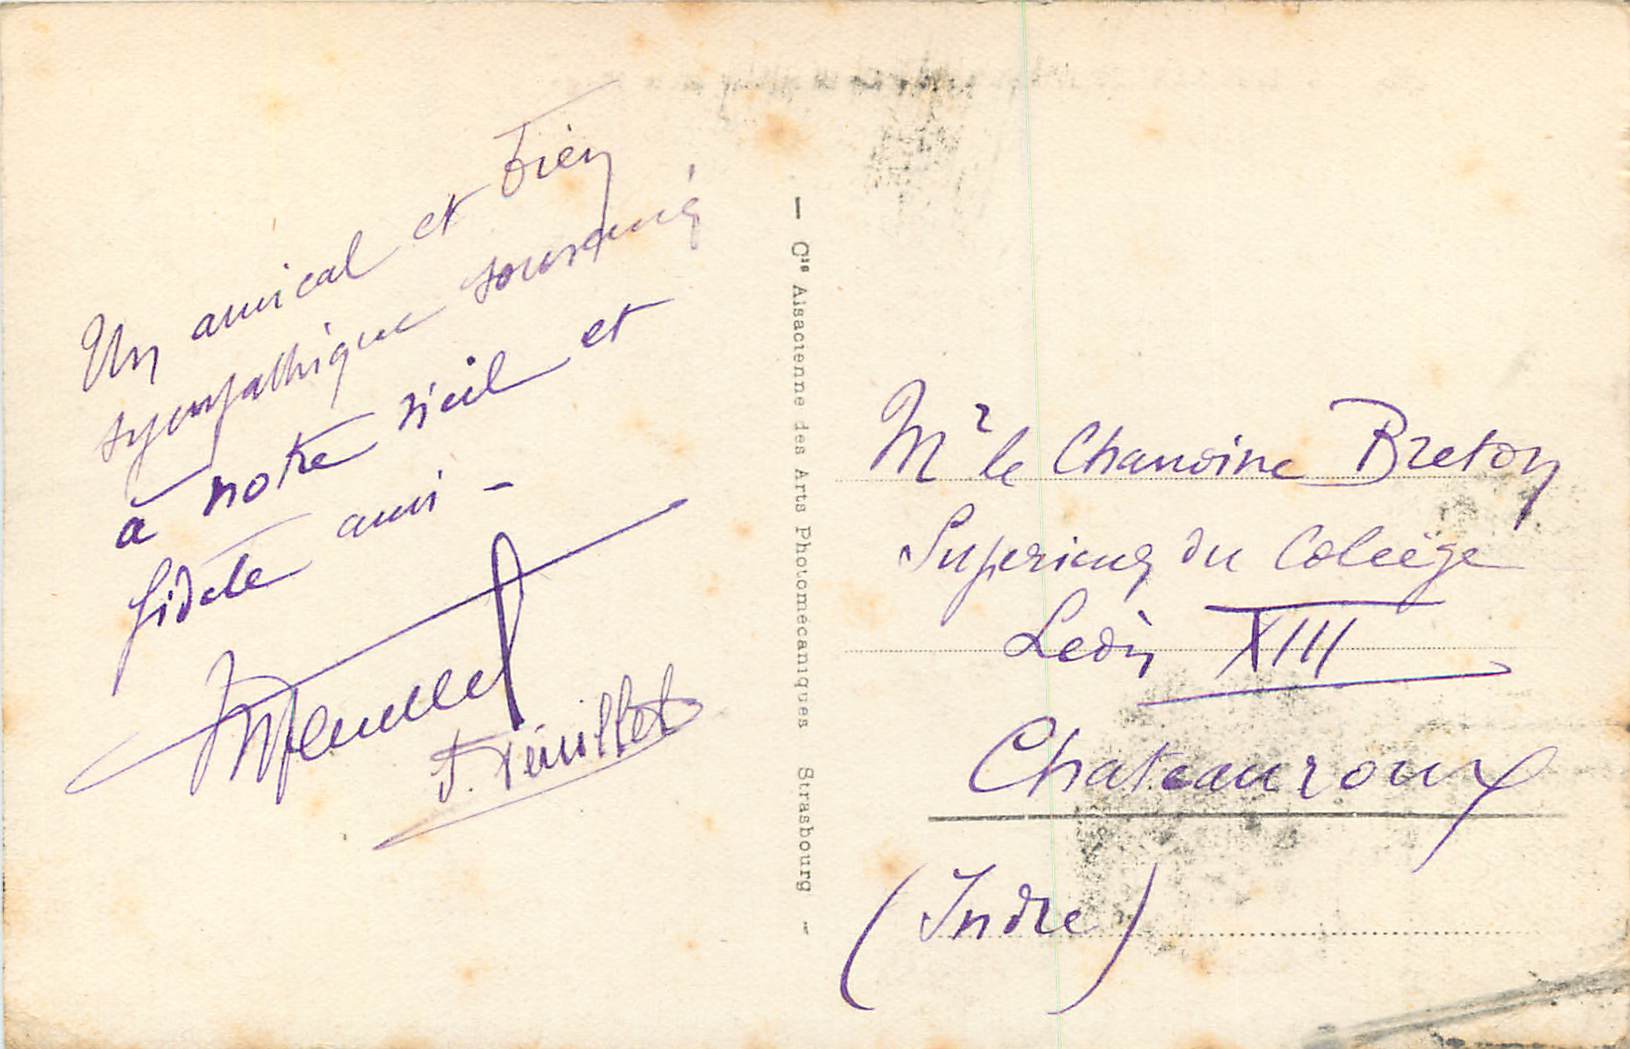 Un amical et bien
sympathique souvenir
à notre vieil et
fidèle ami -
J. Veuillot
— Cie Alsacienne des Arts Photomécaniques Strasbourg -
Mr le Chanoine Breton
Supérieur du Collège
Léon XIII
Chateauroux
(Indre)